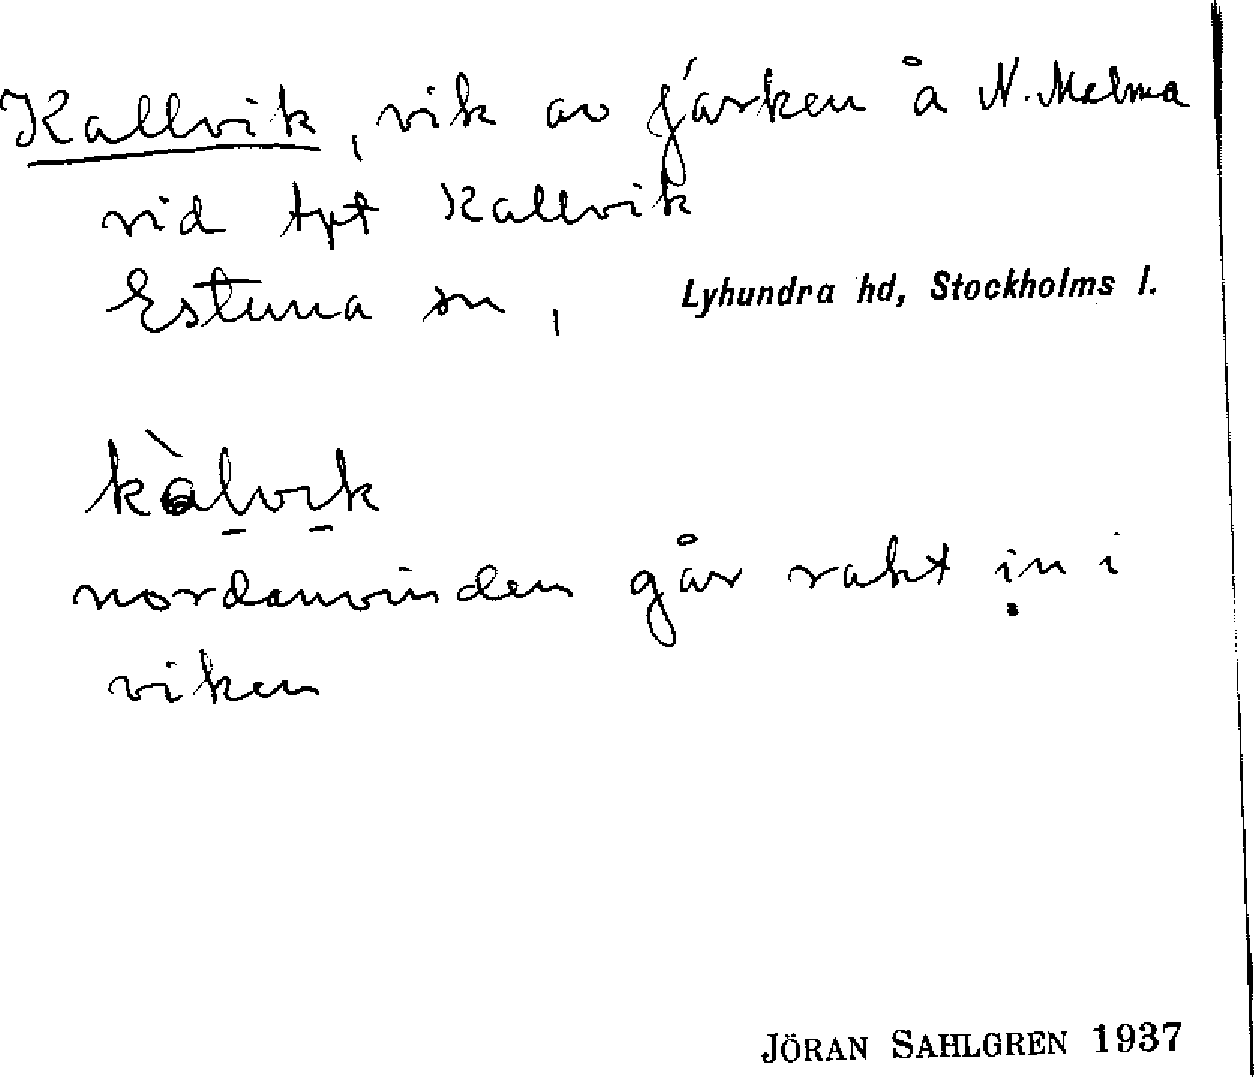 Kallvik, vik av fjärken å N. Malma
vid tpt Kallvik
Estuna sn, Lyhundra hd, Stockholms l.
kàlvık
nordanvinden går rakt in i
viken
JÖRAN SAHLGREN 1937